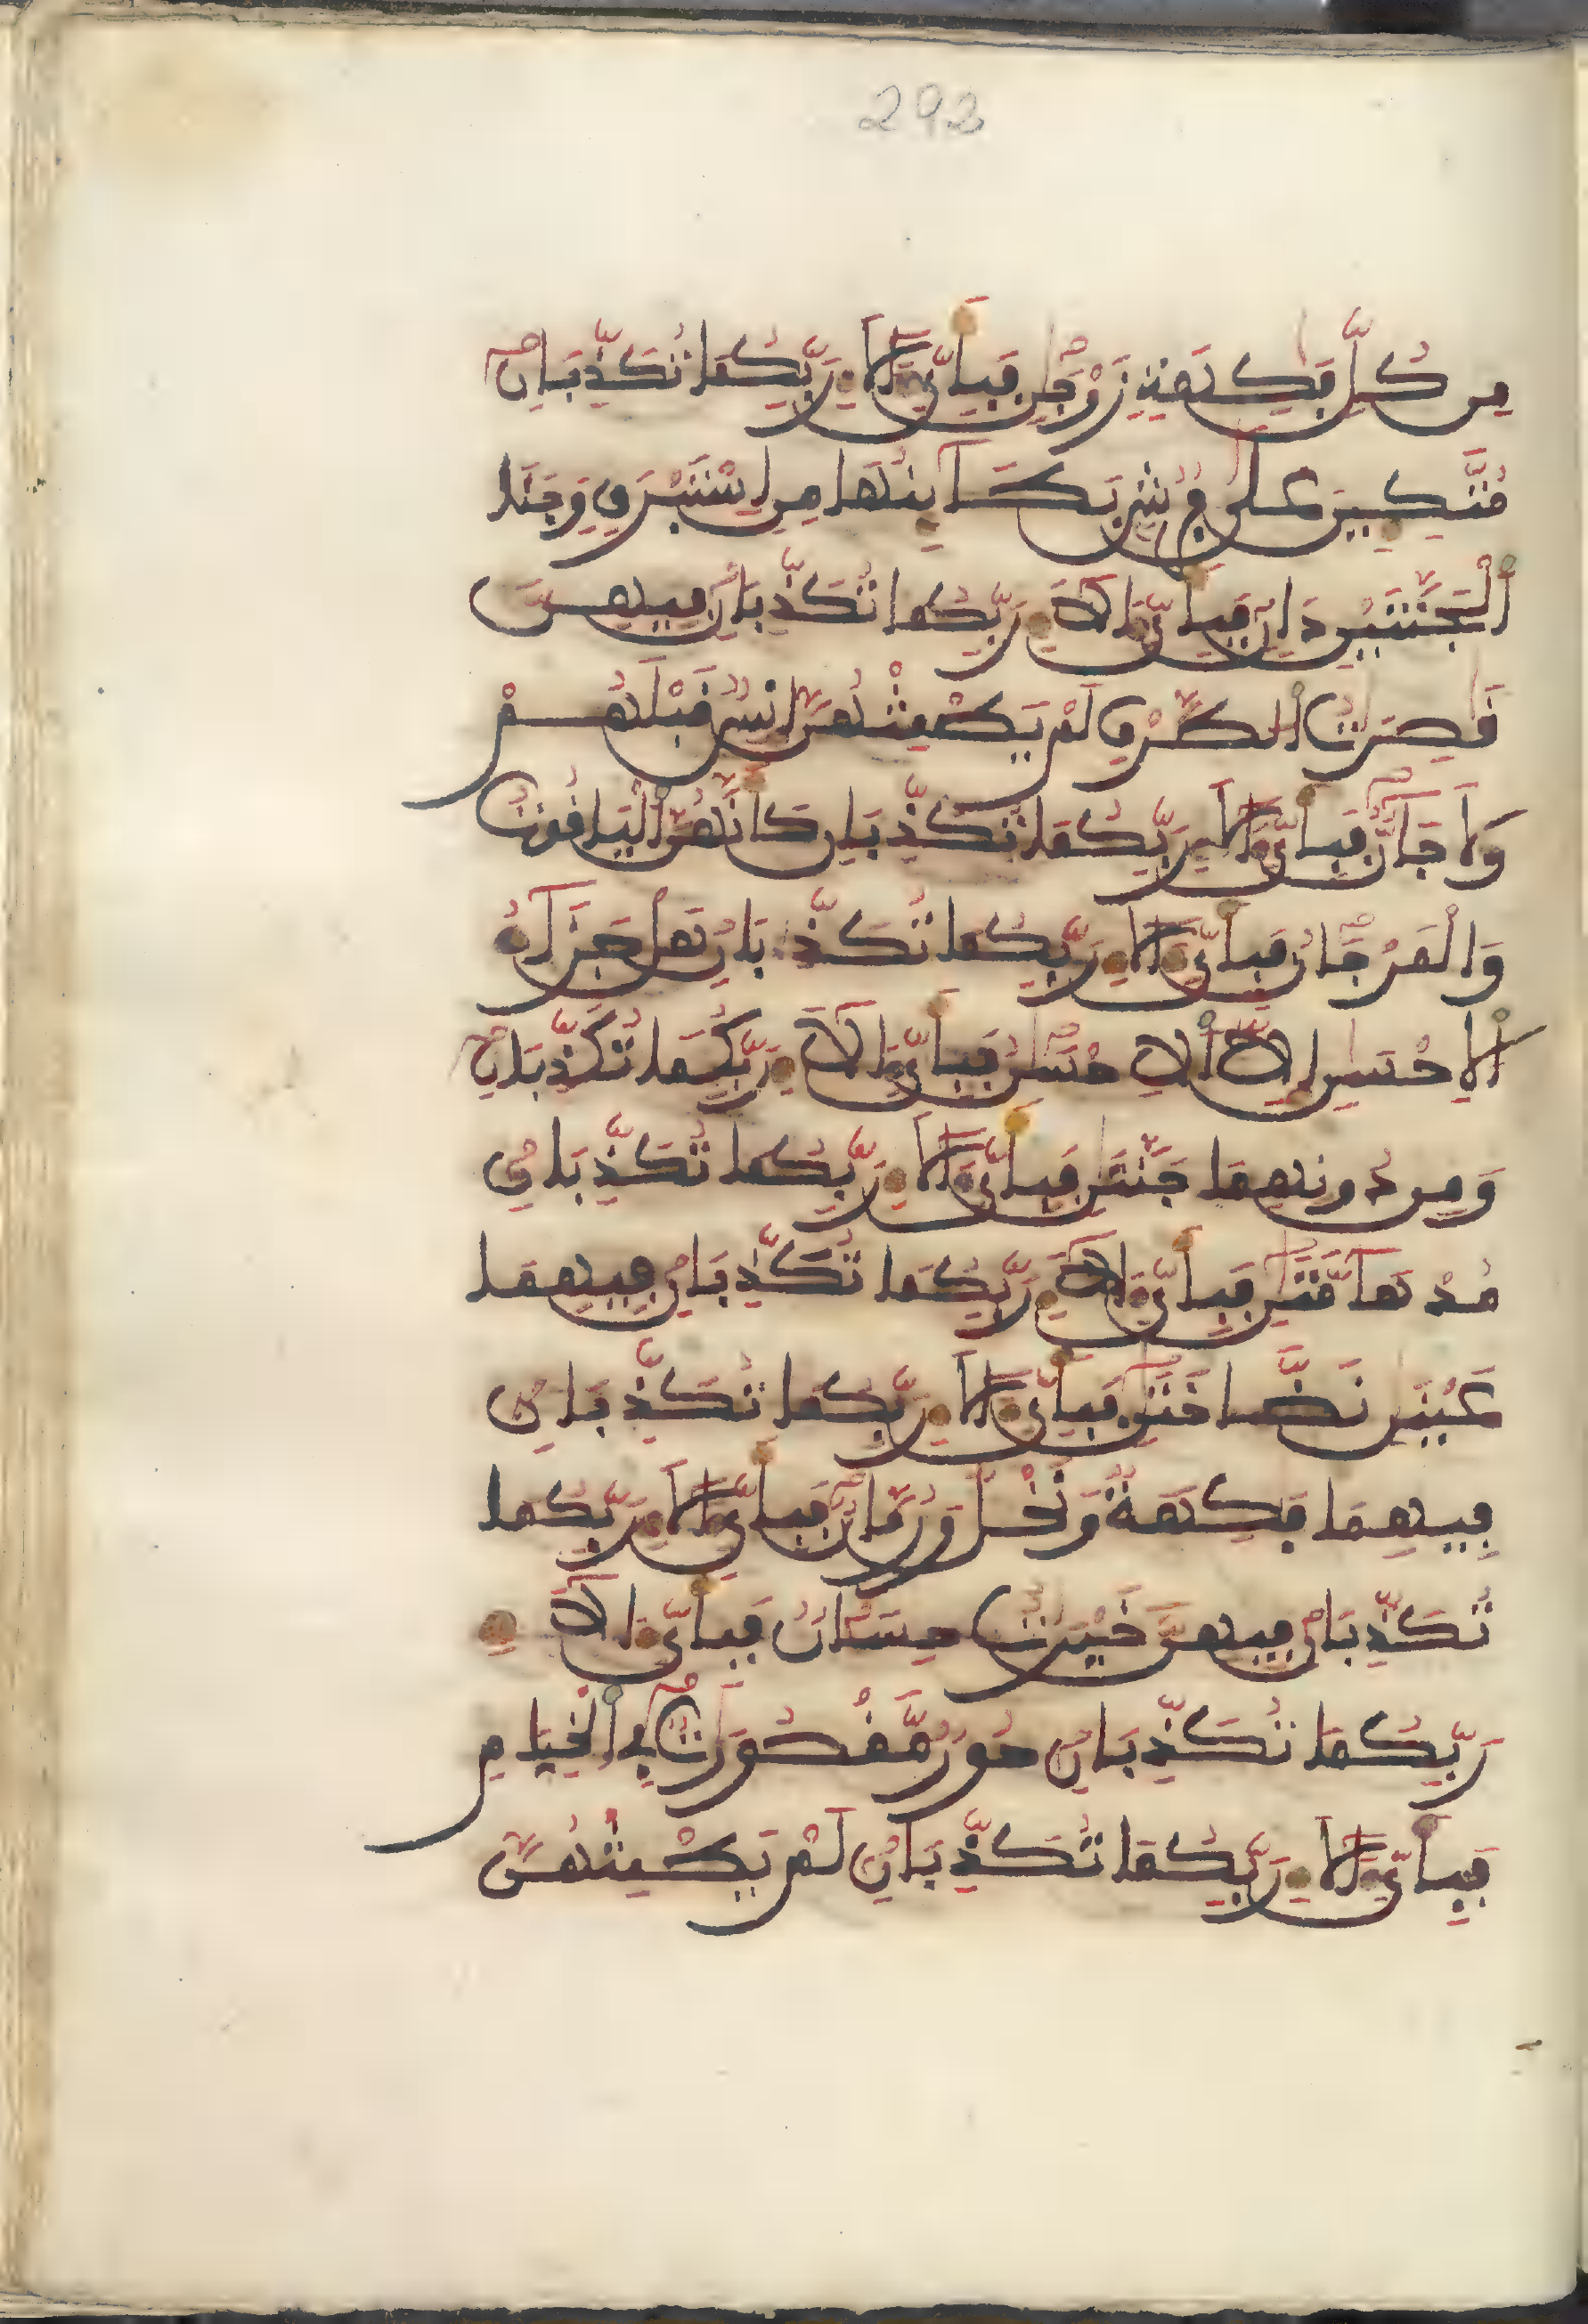 292
مِن كُلِّ فَٰكِهَةٖ زَوْجَٰنِ فَبِأَيِّ ءَالَآءِ رَبِّكُمَا تُكَذِّبَانِ
مُتَّكِـِٔينَ عَلَىٰ فُرُشِۭ بَطَآئِنُهَا مِنِ اسْتَبْرَقٖ وَجَنَا
اَ۬لْجَنَّتَيْنِ دَانٖ فَبِأَيِّ ءَالَآءِ رَبِّكُمَا تُكَذِّبَانِ فِيهِنَّ
قَٰصِرَٰتُ اُ۬لطَّرْفِ لَمْ يَطْمِثْهُنَّ إِنسٞ قَبْلَهُمْ
وَلَا جَآنّٞ فَبِأَيِّ ءَالَآءِ رَبِّكُمَا تُكَذِّبَانِ كَأَنَّهُنَّ اَ۬لْيَاقُوتُ
وَالْمَرْجَانُ فَبِأَيِّ ءَالَآءِ رَبِّكُمَا تُكَذِّبَانِ هَلْ جَزَآءُ
اُ۬لِاحْسَٰنِ إِلَّا اَ۬لِاحْسَٰنُ فَبِأَيِّ ءَالَآءِ رَبِّكُمَا تُكَذِّبَانِ
وَمِن دُونِهِمَا جَنَّتَٰنِ فَبِأَيِّ ءَالَآءِ رَبِّكُمَا تُكَذِّبَانِ
مُدْهَآمَّتَٰنِ فَبِأَيِّ ءَالَآءِ رَبِّكُمَا تُكَذِّبَانِ فِيهِمَا
عَيْنَٰنِ نَضَّاخَتَٰنِ فَبِأَيِّ ءَالَآءِ رَبِّكُمَا تُكَذِّبَانِ
فِيهِمَا فَٰكِهَةٞ وَنَخْلٞ وَرُمَّانٞ فَبِأَيِّ ءَالَآءِ رَبِّكُمَا
تُكَذِّبَانِ فِيهِنَّ خَيْرَٰتٌ حِسَانٞ فَبِأَيِّ ءَالَآءِ
رَبِّكُمَا تُكَذِّبَانِ حُورٞ مَّقْصُورَٰتٞ فِي اِ۬لْخِيَامِ
فَبِأَيِّ ءَالَآءِ رَبِّكُمَا تُكَذِّبَانِ لَمْ يَطْمِثْهُنَّ